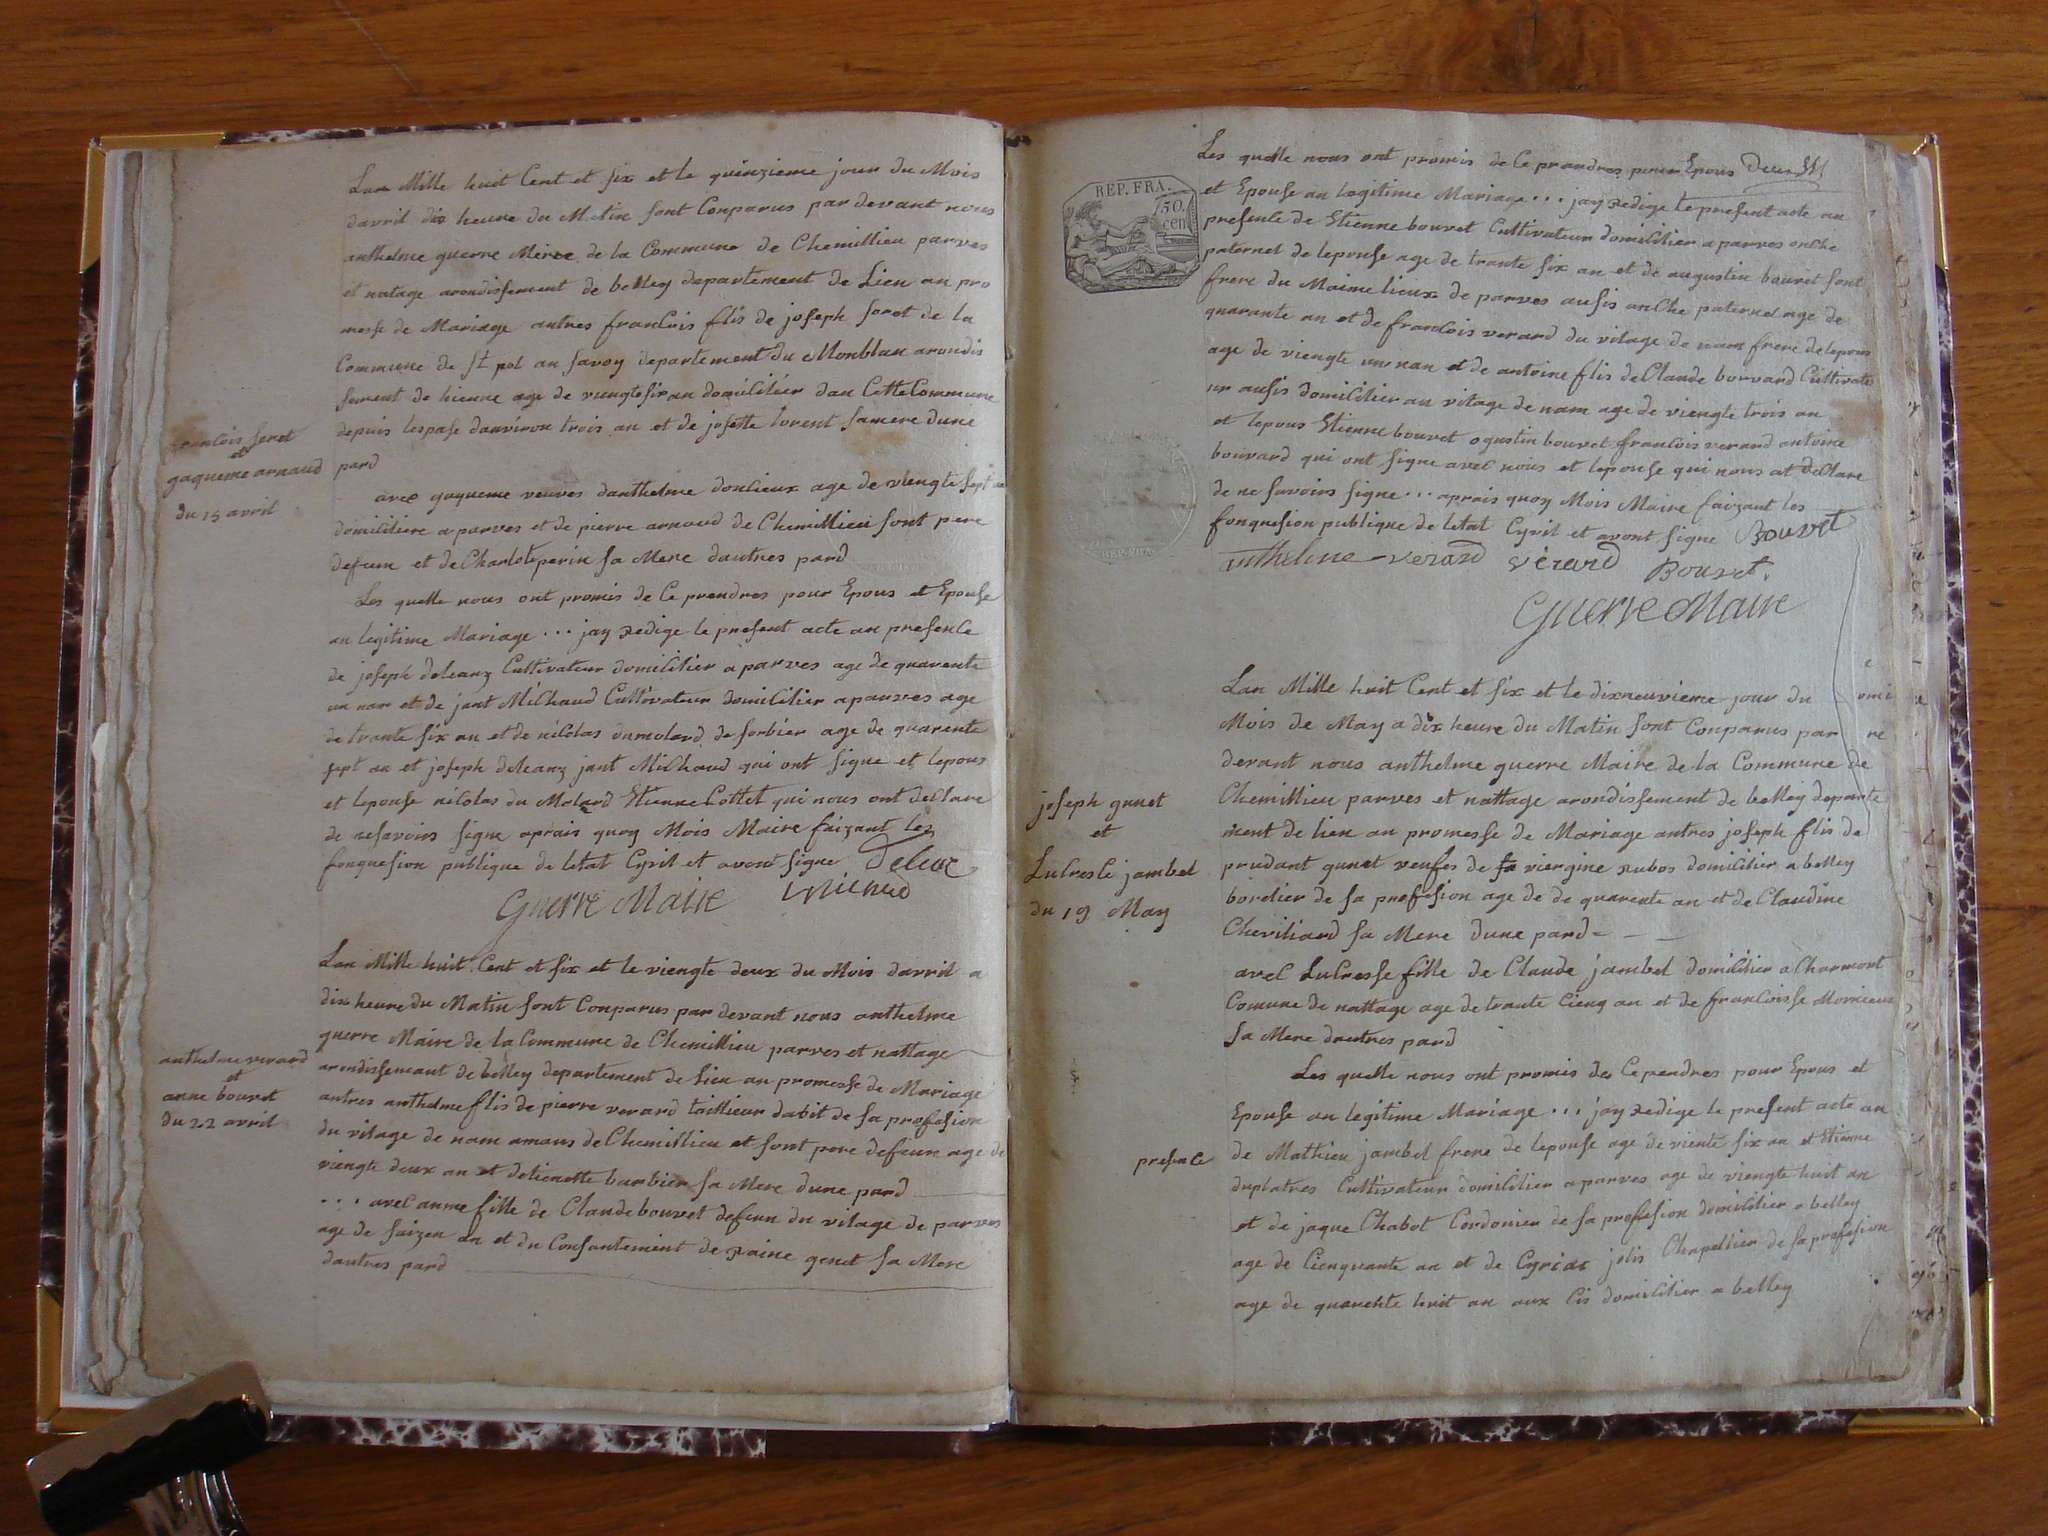 Lan Mille huit Cent et six et le quinzieme jour du Mois
davril dix heure du Matin sont Conparus par devant nous
anthelme guerre Mere de la Commune de Chemillieu parves
et natage arondissement de belley departement de Lien an pro
messe de Mariage antres francois flis de joseph foret de la
Commune de st pol an savoy departement du Monblan arondis
sement de hienne age de viengte six an domicilier dan Cette Commune
depuis lespase danviron trois an et de josette lorent sa mere dune
pard
francois foret
et
gaqueme arnaud
du 15 avril
avec gaqueme veuves danthelme donlieux age de viengte sept an
domiciliere a parves et de pierre arnaud de Chemillieu sont pere
defeun et de Charlote perin sa Mere dautres pard
Les quelle nous ont promis de Ce prendres pour Epous et Epouse
an legitime Mariage ... jay redige le present acte an presence
de joseph deleanz Cultivateur domicilier a parves age de quarente
un nan et de jant Milhaud Cultivateur domicilier a parves age
de trante six an et de nicolas dumolard de sorbier age de quarente
sept an et joseph deleanz jant Milhaud qui ont signe et lepous
et lepouse nicolas du Molard Etienne Cottet qui nous ont declare
de ne savoirs signe aprais quoy Mois Maire faizant les
fonquesion publique de letat Cyvil et avont signe
Guerre Maire
Lan Mille huit Cent et six et le viengte deux du Mois davril a
dix heure du Matin sont Conparus par devant nous anthelme
guerre Maire de la Commune de Chemillieu parves et nattage
arondissemant de belley departement de Lien an promesse de Mariage
antres anthelme flis de pierre verard taillieur dabit de sa profesion
du vilage de nam amans de Chemillieu et sont pere defeun age de
viengte deux an et detienette barbier sa Mere dune pard
anthelme verard
et
anne bouvet
du 22 avril
... avec anne fille de Claude bouvet defeun du vilage de parves
age de saizen an et du Consantement de raine genet sa Mere
dautres pard
Les quelle nous ont promis de Ce prandres pour Epous
et Epouse an legitime Mariage ... jay redige le present acte an
REP. FRA.
50
cen
presence de Etienne bouvet Cultivateur domicilier a parves onche
paternel de lepouse age de trante six an et de augustin bouvet sont
frere du Maime lieux de parves ausis onche paternel age de
quarante an et de francois verard du vilage de nam frere de lepous
age de viengte un nan et de antoine flis de Claude bouvard Cultivate
ur ausis domicilier au vilage de nam age de viengte trois an
et lepous Etienne bouvet ogustin bouvet francois verard antoine
bouvard qui ont signe avec nous et lepouse qui nous at declare
de ne savoirs signe ... aprais quoy Mois Maire faizant les
fonquesion publique de letat Cyvil et avont signe Bouvet
anthelme verard verard Bouvet.
Guerre Maire
Lan Mille huit Cent et six et le dixneuvieme jour du
Mois de May a dix heure du Matin sont Conparus par
devant nous anthelme guerre Maire de la Commune de
Chemillieu parves et nattage arondissement de belley departe
ment de Lien an promesse de Mariage antres joseph flis de
prudant gunet veufes de viergine rubos domicilier a belley
bordier de sa profesion age de de quarente an et de Claudine
Cheviliard sa Mere dune pard
joseph gunet
et
Lulresle jambel
du 19 May
avec Lulresse fille de Claude jambel domicilier a Charmont
Comune de nattage age de trante cienq an et de francoisse Monieur
sa Mere dautres pard
Les quelle nous ont promis des Ce pendres pour Epous et
Epouse an legitime Mariage ... jay redige le present acte an
presence
de Mathieu jambel frere de lepouse age de viente six an et Etienne
duplatres Cultivateur domicilier a parves age de viengte huit an
et de jaque Chabot Cordonier de sa profesion domicilier a belley
age de Cienquante an et de Cyriac jolis Chapellier de sa profesion
age de quarente huit an aux Cis domicilier a belley